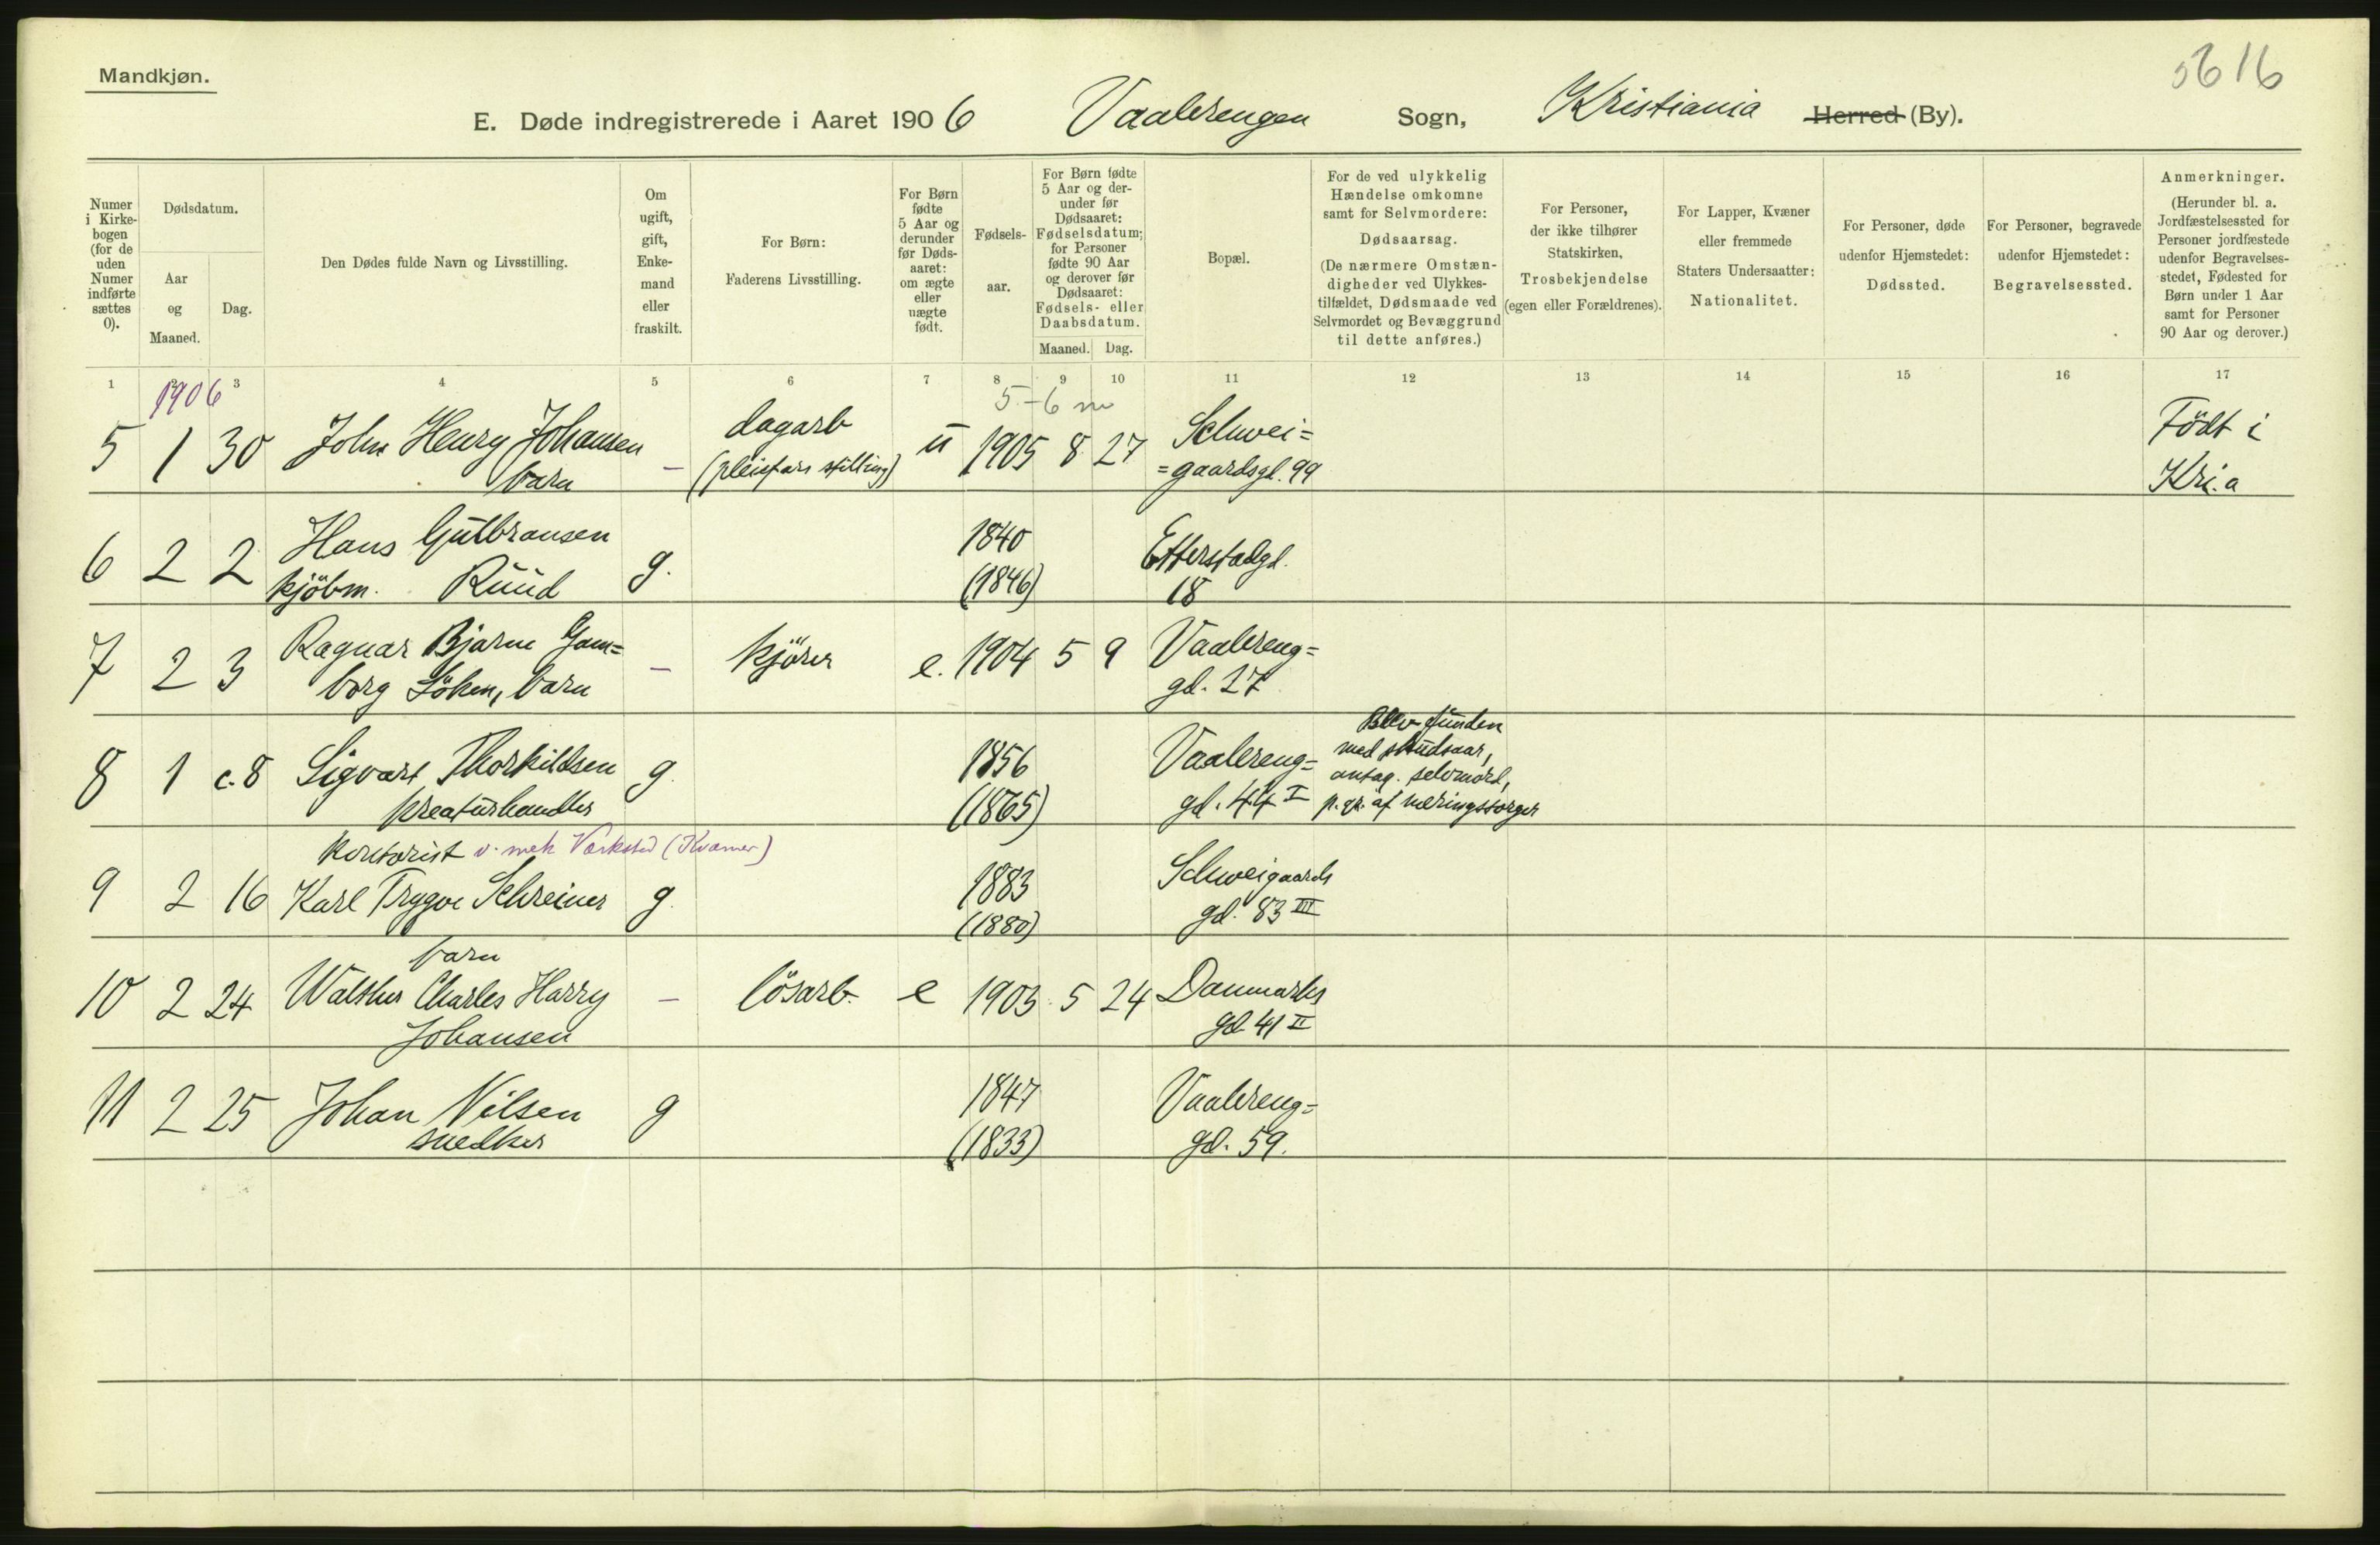 Mandkjøn.
5616
E. Døde indregistrerede i Aaret 1906 Vaalerengen Sogn, Kristiania Herred (By).
Numer i Kirkebogen (for de uden Numer indførte sættes 0).
Dødsdatum.
Aar og Maaned.
Dag.
Den Dødes fulde Navn og Livsstilling.
Om ugift, gift, Enkemand eller fraskilt.
For Børn: Faderens Livsstilling.
For Børn fødte 5 Aar og derunder før Dødsaaret: om ægte eller uægte født.
Fødselsaar.
For Børn fødte 5 Aar og derunder før Dødsaaret: Fødselsdatum; for Personer fødte 90 Aar og derover før Dødsaaret: Fødsels- eller Daabsdatum.
Maaned. Dag.
Bopæl.
For de ved ulykkelig Hændelse omkomne samt for Selvmordere: Dødsaarsag. (De nærmere Omstændigheder ved Ulykkestilfældet, Dødsmaade ved Selvmordet og Bevæggrund til dette anføres.)
For Personer, der ikke tilhører Statskirken, Trosbekjendelse (egen eller Forældrenes).
For Lapper, Kvæner eller fremmede Staters Undersaatter: Nationalitet.
For Personer, døde udenfor Hjemstedet: Dødssted.
For Personer, begravede udenfor Hjemstedet: Begravelsessted.
Anmerkninger. (Herunder bl. a. Jordfæstelsessted for Personer jordfæstede udenfor Begravelsesstedet, Fødested for Børn under 1 Aar samt for Personer 90 Aar og derover.)
1 2 3 4 5 6 7 8 9 10 11 12 13 14 15 16 17
1906
5-6 m
5 1 30 John Henry Johansen — dagarb u 1905 8 27 Schwei= Födt i
barn (pleiefars stilling) =gaardsgd. 99 Kri.a
6 2 2 Hans Gulbransen g. 1840 Etterstadgd.
kjöbm. Ruud (1846) 18
7 2 3 Ragnar Bjarne Gam= — kjörer e. 1904 5 9 Vaalereng=
borg Löken, barn gd. 27
8 1 c.8 Sigvart Thorkildsen g. 1856 Vaalereng= Blev funden
kreaturhandler (1865) gd. 44 I med skudsaar,
antag. selvmord,
p. gr. af næringssorger
kontorist v. mek Værksted (Kværner)
9 2 16 Karl Trygve Schreiner g. 1883 Schweigaards
(1880) gd. 83 III
barn
10 2 24 Walther Charles Harry — lösarb. e 1903 5 24 Danmarks
Johansen gd 41 II
11 2 25 Johan Nilsen g 1847 Vaalereng=
snedker (1833) gd. 59.